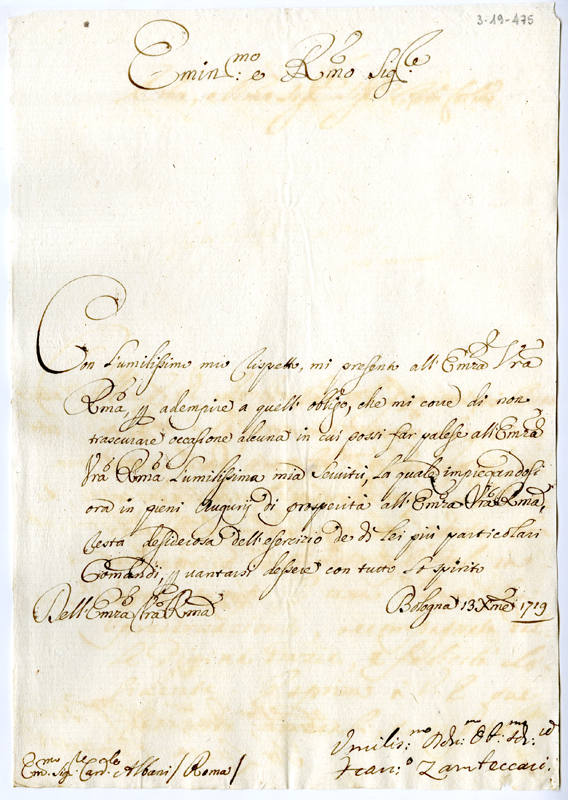 3-19-475
Emin:mo e R:mo Sig:re
Con l'umilissimo mio Rispetto, mi presento all'Emza Vra
Rma, p adempire a quell'obligo, che mi corre di non
trascurare occasione alcuna in cui possi far palese all'Emza
Vra Rma l'umilissima mia Servitù, la quale impiegandosi
ora in pieni Augurij di prosperità all'Emza Vra Rma,
Resta desiderosa dell'esercizio de di Lei più particolari
Comandi, p vantarsi dessere con tutto lo spirito
Dell'Emza Vra Rma Bologna 13 Xmre 1719
Umilis:mo
Fran:o Zambeccari
Em:mo Sig: Card: Albani / Roma /